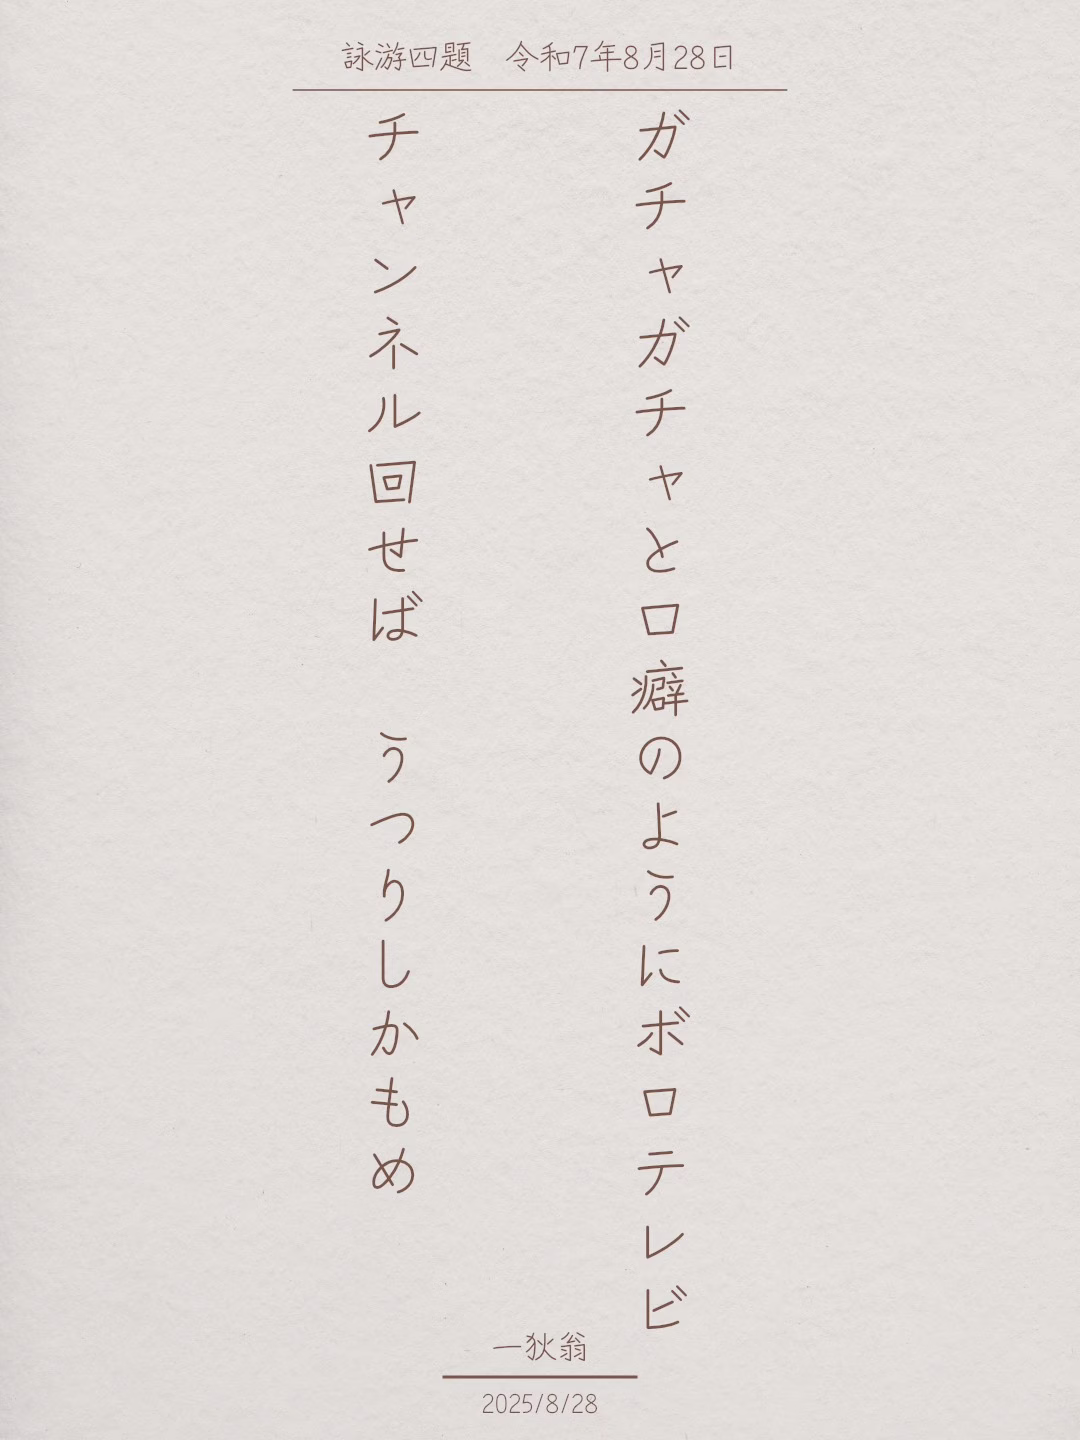 詠游四題　令和7年8月28日
ガチャガチャと口癖のようにボロテレビ
チャンネル回せば　うつりしかもめ
一狄翁
2025/8/28